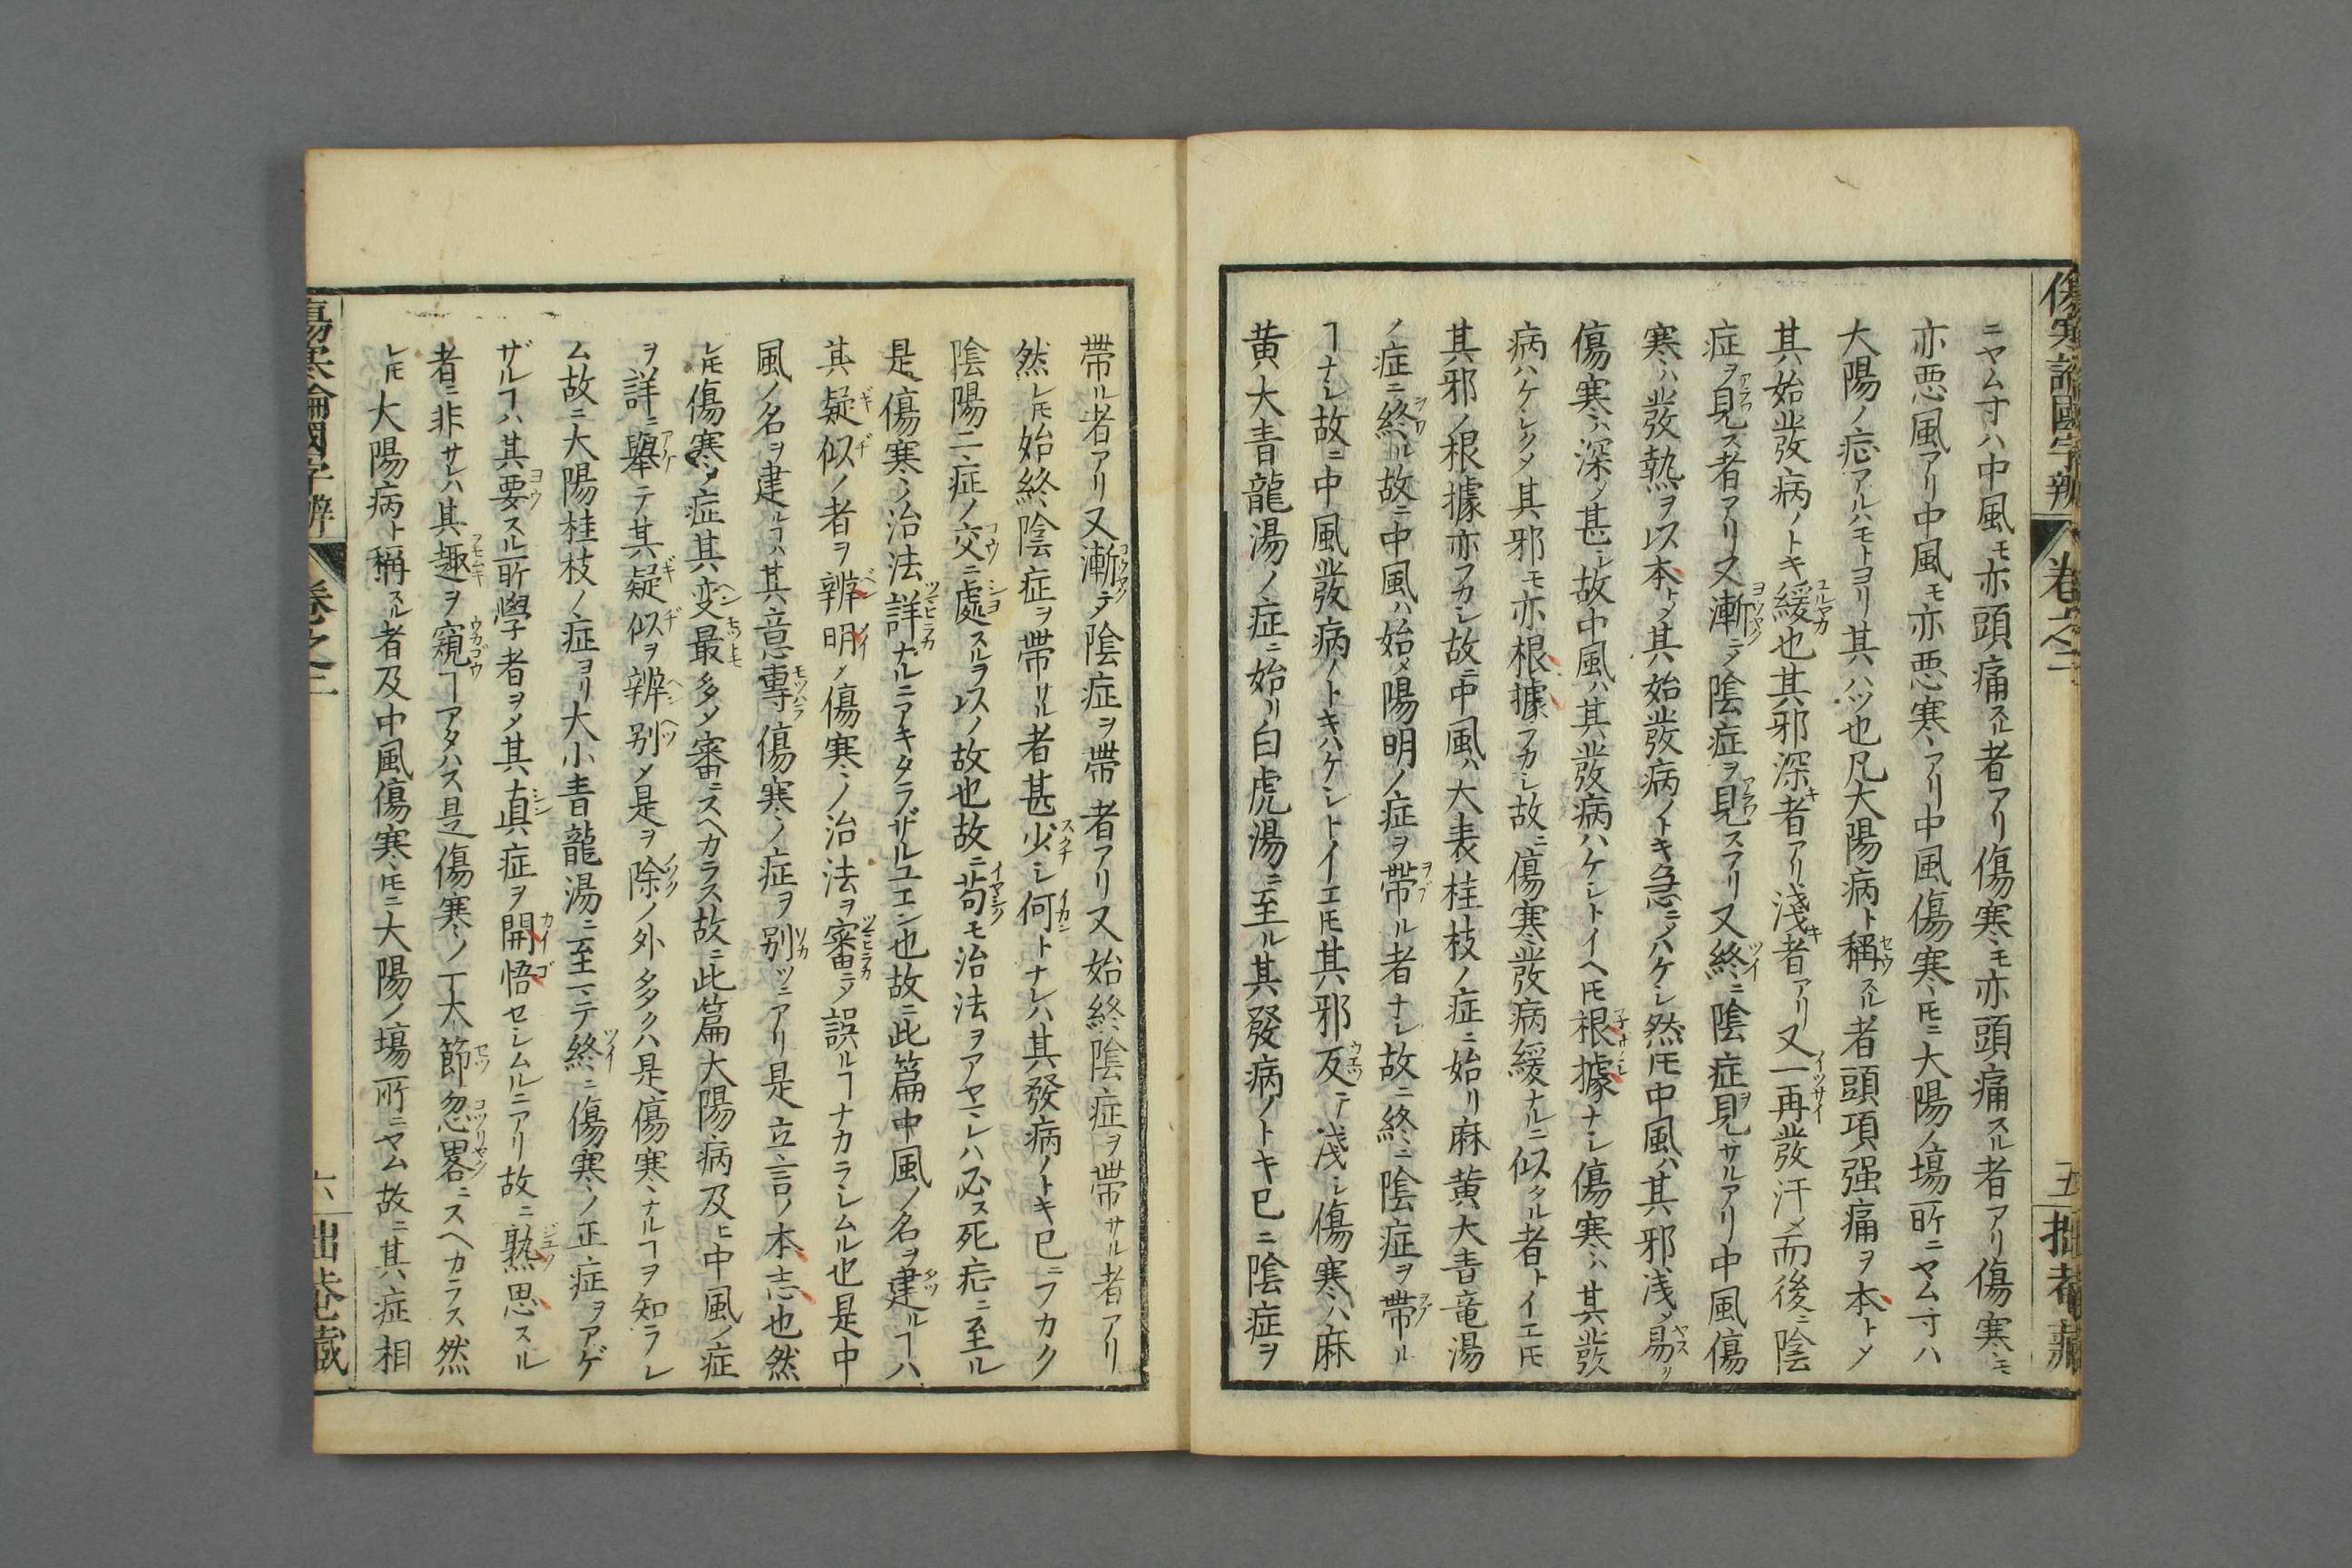 傷寒論國字辨 卷之二 五 拙菴藏
ニヤム寸ハ中風モ亦頭痛スル者アリ傷寒モ亦頭痛スル者アリ傷寒モ
亦悪風アリ中風モ亦悪寒アリ中風傷寒𪜈ニ大陽ノ塲所ニヤム寸ハ
大陽ノ症アルハモトヨリ其ハツ也凡大陽病ト稱スル者頭項强痛ヲ本トメ
其始發病ノトキ緩也其邪深キ者アリ淺キ者アリ又一再發汗メ而後ニ陰
症ヲ見ス者アリ又漸ニメ陰症ヲ見スアリ又終ニ陰症ヲ見サルアリ中風傷
寒ハ發熱ヲ以本トメ其始發病ノトキ急ニメハケシ然𪜈中風ハ其邪浅メ易シ
傷寒ハ深メ甚シ故中風ハ其發病ハケシトイヘ𪜈根據ナシ傷寒ハ其發
病ハケシクメ其邪モ亦根據フカシ故ニ傷寒發病緩ナルニ似タル者トイエ𪜈
其邪ノ根據亦フカシ故ニ中風ハ大表桂枝ノ症ニ始リ麻黄大青竜湯
ノ症ニ終ル故ニ中風ハ始メ陽明ノ症ヲ帶ル者ナシ故ニ終ニ陰症ヲ帶ル
ヿナシ故ニ中風發病ノトキハケシトイエ𪜈其邪反テ淺シ傷寒ハ麻
黄大青龍湯ノ症ニ始リ白虎湯ニ至ル其發病ノトキ已ニ陰症ヲ
帶ル者アリ又漸テ陰症ヲ帶者アリ又始終陰症ヲ帶サル者アリ
然レ𪜈始終陰症ヲ帶サル者甚少シ何トナレハ其發病ノトキ已ニフカク
陰陽二症ノ交ニ處スルヲ以ノ故也故ニ苟モ治法ヲアヤマレハ必ス死症ニ至ル
是傷寒ノ治法詳ナルニアキタラザルユエン也故ニ此篇中風ノ名ヲ建ルヿハ
其疑似ノ者ヲ辨明メ傷寒ノ治法ヲ審ニメ誤ルヿナカラシムル也是中
風ノ名ヲ建ルヿハ其意專傷寒ノ症ヲ別ツニアリ是立言ノ本志也然
レ𪜈傷寒ノ症其変最多メ審ニスヘカラス故ニ此篇大陽病及ヒ中風ノ症
ヲ詳ニ舉テ其疑似ヲ辨別メ是ヲ除ノ外多クハ是傷寒ナルヿヲ知ラシ
ム故ニ大陽桂枝ノ症ヨリ大小青龍湯ニ至マテ終ニ傷寒ノ正症ヲアゲ
ザルヿハ其要スル所學者ヲメ其真症ヲ開悟セシムルニアリ故ニ熟思スル
者ニ非サレハ其趣ヲ窺ヿアタハス是傷寒ノ一大節忽畧ニスヘカラス然
レ𪜈大陽病ト稱スル者及中風傷寒𪜈ニ大陽ノ塲所ニヤム故ニ其症相
傷寒論國字辨 卷之二 六 拙菴藏